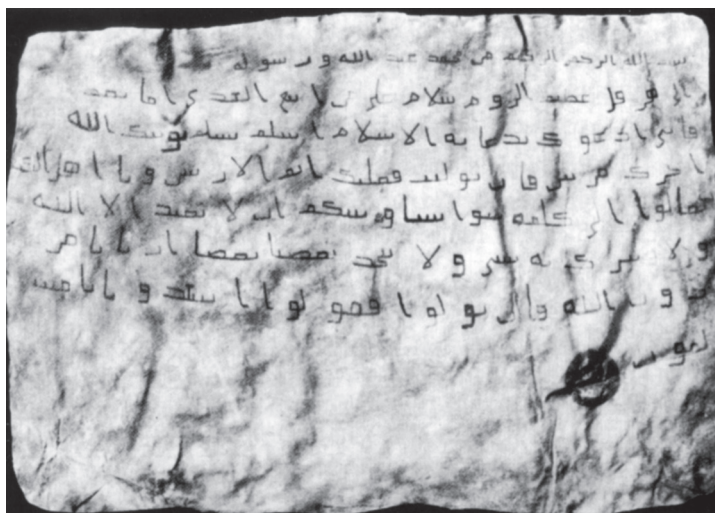 بسم الله الرحمن الرحيم من محمد عبد الله ورسوله
الى هرقل عظيم الروم سلام على من اتبع الهدى اما بعد
فاني ادعوك بدعاية الاسلام اسلم تسلم يوتك الله
اجرك مرتين فان توليت فعليك اثم الاريسين ويا اهل الكت
ب تعالوا الى كلمة سوا بيننا وبينكم ان لا نعبد الا الله
ولا نشرك به شي ولا يتخذ بعضنا بعضا اربابا من
دون الله فان تولوا فقولوا اشهدوا بانا مس
لمون